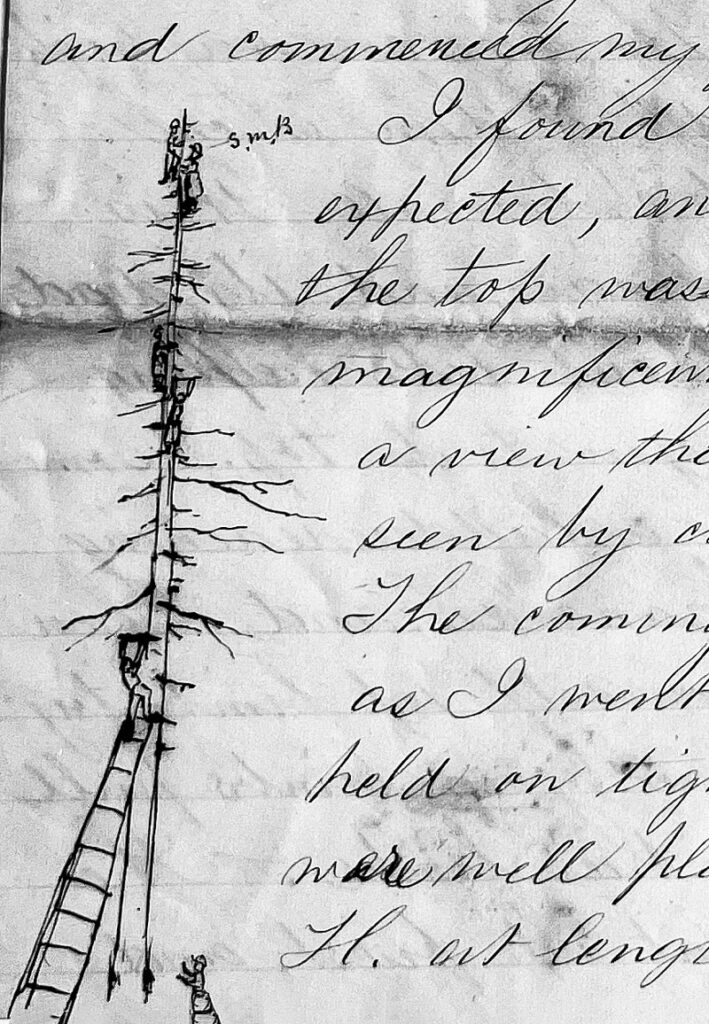 and commenced my
S.M.B
I found
expected, an
the top was
magnificen
a view tha
seen by c
The coming
as I went
held on tig
were well pla
H. at leng